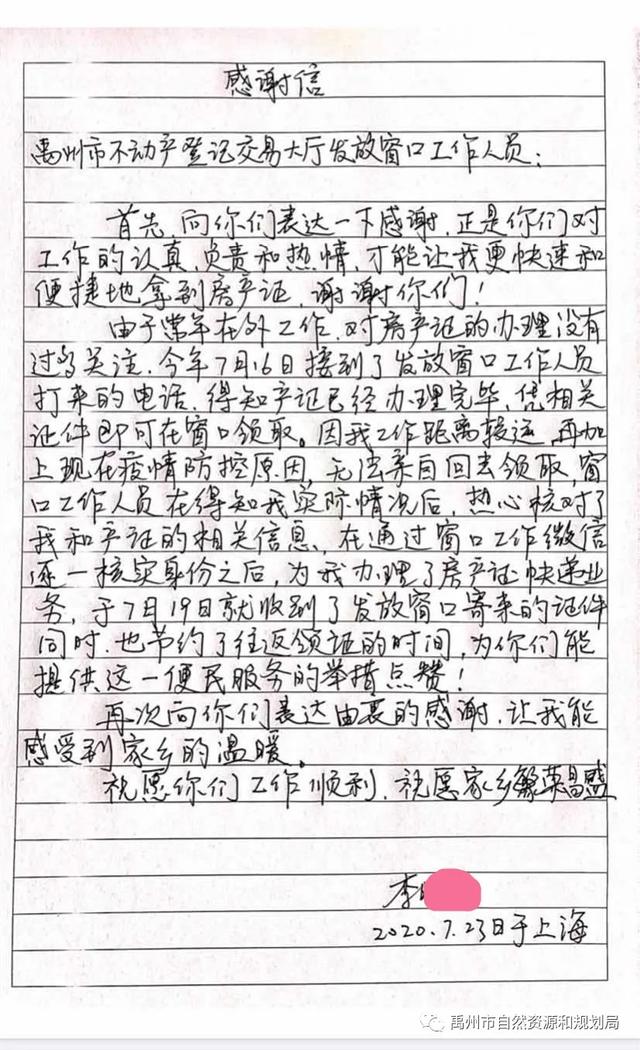 感谢信
禹州市不动产登记交易大厅发放窗口工作人员:
首先,向你们表达一下感谢,正是你们对
工作的认真,负责和热情,才能让我更快速和
便捷地拿到房产证,谢谢你们!
由于常年在外工作,对房产证的办理没有
过多关注,今年7月16日接到了发放窗口工作人员
打来的电话,得知产证已经办理完毕,凭相关
证件即可在窗口领取。因我工作距离较远,再加
上现在疫情防控原因,无法亲自回去领取,窗
口工作人员在得知我实际情况后,热心核对了
我和产证的相关信息,在通过窗口工作微信
逐一核实身份之后,为我办理了房产证快递业
务,于7月19日就收到了发放窗口寄来的证件
同时,也节约了往返领证的时间,为你们能
提供这一便民服务的举措点赞!
再次向你们表达由衷的感谢,让我能
感受到家乡的温暖。
祝愿你们工作顺利,祝愿家乡繁荣昌盛
李
2020.7.23日于上海
禹州市自然资源和规划局